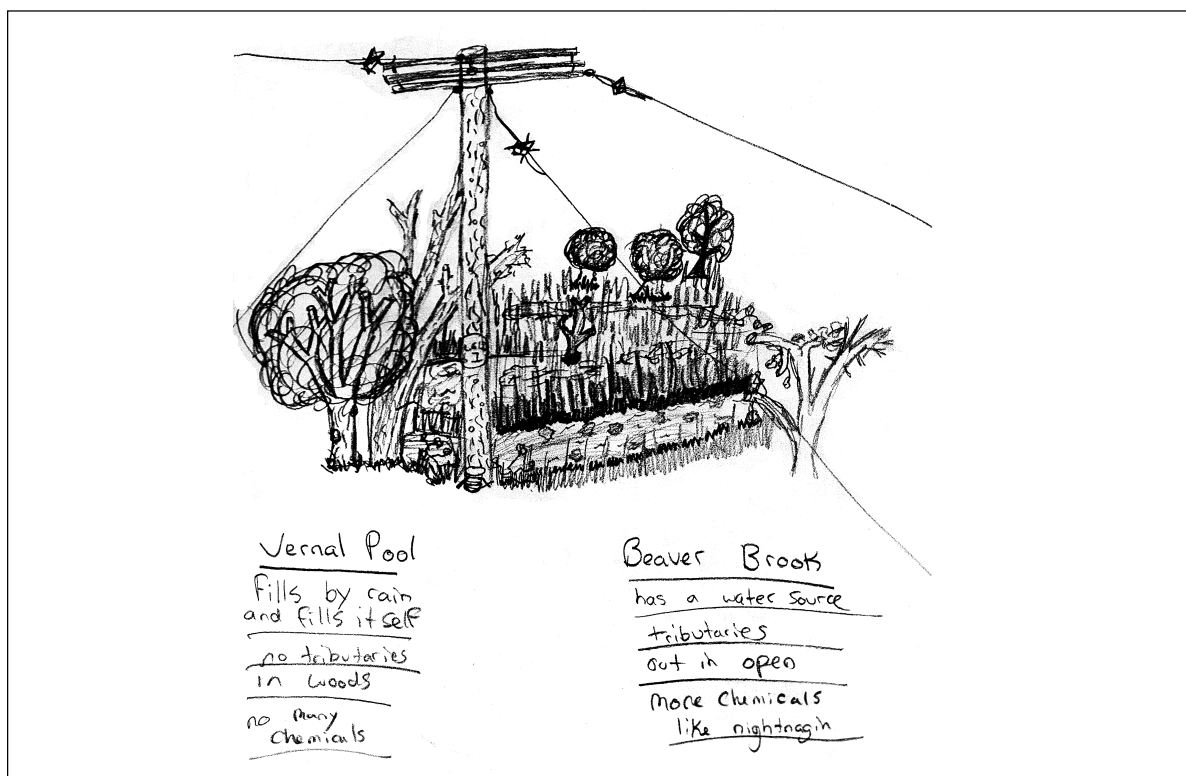 Vernal Pool
fills by rain
and fills itself
no tributaries
in woods
no many
chemicals
Beaver Brook
has a water source
tributaries
out in open
more chemicals
like nightnagin